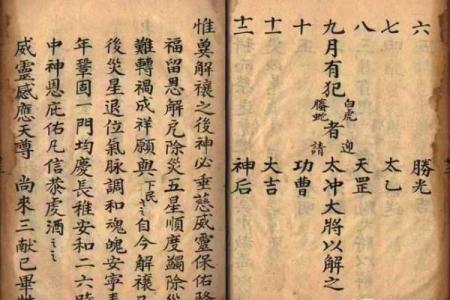 六 勝光
七 太乙
八 天罡
九月有犯白虎螣蛇者迎請太冲大將以解之
十 功曹
十一 大吉
十二 神后
惟奠解禳之後神必垂慈威靈保佑
福留恩解厄除災五星順度蠲除災
難轉禍成祥願與下民自今解禳
後災星退位氣脈調和魂魄安寧
年鞏固一門均慶長稚安和二六時
中神恩庇佑凡信
威靈感應天尊 尚來三献已畢